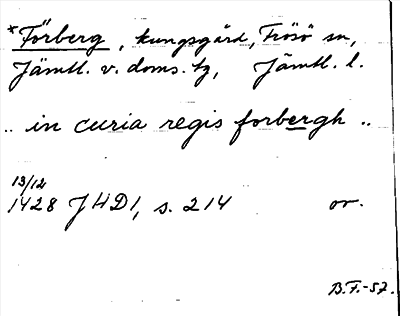 *Förberg, kungsgård, Frösö sn,
Jämtl. v. doms. tg, Jämtl. l.
.. in curia regis forbergh ..
13/12
1428 JHD1, s. 214 or.
B.F.-57.